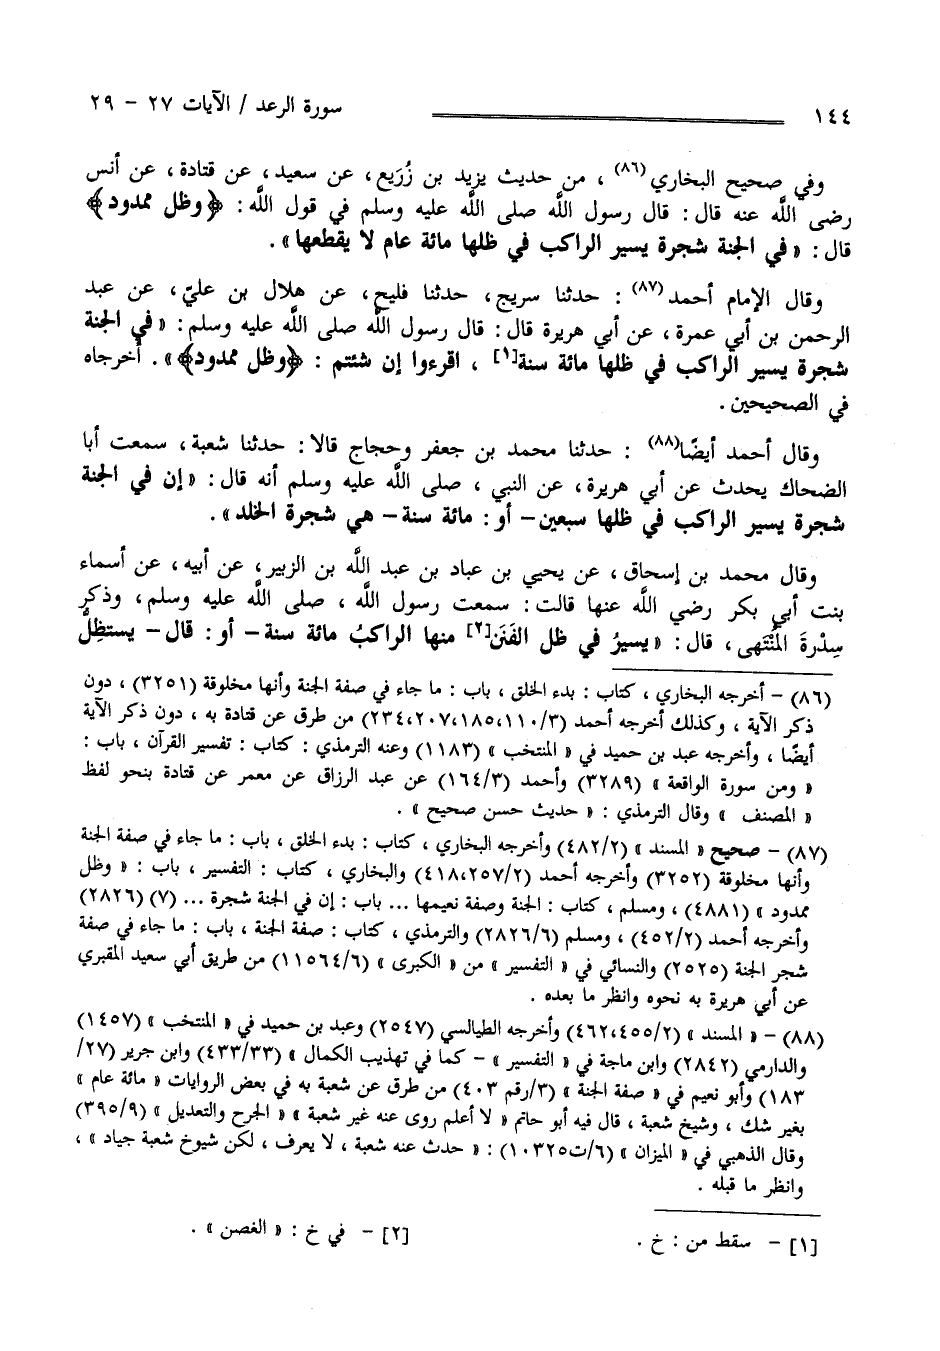 ١٤٤ سورة الرعد / الآيات ٢٧ - ٢٩
وفي صحيح البخاري(٨٦) ، من حديث يزيد بن زُرَيع، عن سعيد، عن قتادة، عن أنس
رضى اللَّه عنه قال: قال رسول اللَّه صلى اللَّه عليه وسلم في قول اللَّه: ﴿وظل ممدود﴾
قال: « في الجنة شجرة يسير الراكب في ظلها مائة عام لا يقطعها».
وقال الإمام أحمد(٨٧) : حدثنا سريج، حدثنا فليح، عن هلال بن عليّ، عن عبد
الرحمن بن أبي عمرة، عن أبي هريرة قال: قال رسول اللَّه صلى اللَّه عليه وسلم: «في الجنة
شجرة يسير الراكب في ظلها مائة سنة[١] ، اقرءوا إن شئتم : ﴿وظل ممدود﴾» . أخرجاه
في الصحيحين.
وقال أحمد أيضًا(٨٨) : حدثنا محمد بن جعفر وحجاج قالا: حدثنا شعبة، سمعت أبا
الضحاك يحدث عن أبي هريرة، عن النبي ، صلى اللَّه عليه وسلم أنه قال: «إن في الجنة
شجرة يسير الراكب في ظلها سبعين- أو: مائة سنة- هي شجرة الخلد».
وقال محمد بن إسحاق، عن يحيي بن عباد بن عبد اللَّه بن الزبير، عن أبيه، عن أسماء
بنت أبي بكر رضي اللَّه عنها قالت: سمعت رسول اللَّه ، صلى اللَّه عليه وسلم، وذكر
سِدْرةَ المُنْتَهى، قال: «يسيرُ في ظل الفَنَن[٢] منها الراكبُ مائة سنة- أو: قال- يستظِلُّ
(٨٦) - أخرجه البخاري ، كتاب : بدء الخلق ، باب : ما جاء في صفة الجنة وأنها مخلوقة (٣٢٥١) ، دون
ذكر الآية ، وكذلك أخرجه أحمد (٣/ ١١٠،١٨٥،٢٠٧،٢٣٤) من طرق عن قتادة به ، دون ذكر الآية
أيضًا ، وأخرجه عبد بن حميد في « المنتخب » (١١٨٣) وعنه الترمذي : كتاب : تفسير القرآن ، باب :
« ومن سورة الواقعة » (٣٢٨٩) وأحمد (٣/ ١٦٤) عن عبد الرزاق عن معمر عن قتادة بنحو لفظ
« المصنف » وقال الترمذي : « حديث حسن صحيح » .
(٨٧) - صحيح « المسند » (٢/ ٤٨٢) وأخرجه البخاري ، كتاب : بدء الخلق ، باب : ما جاء في صفة الجنة
وأنها مخلوقة (٣٢٥٢) وأخرجه أحمد (٢/ ٢٥٧،٤١٨) والبخاري ، كتاب : التفسير ، باب : « وظل
ممدود » (٤٨٨١) ، ومسلم ، كتاب : الجنة وصفة نعيمها ... باب : إن في الجنة شجرة ... (٧) (٢٨٢٦)
وأخرجه أحمد (٢/ ٤٥٢) ، ومسلم (٦/ ٢٨٢٦) والترمذي ، كتاب : صفة الجنة ، باب : ما جاء في صفة
شجر الجنة (٢٥٢٥) والنسائي في « التفسير » من « الكبرى » (٦/ ١١٥٦٤) من طريق أبي سعيد المقبري
عن أبي هريرة به نحوه وانظر ما بعده .
(٨٨) - « المسند » (٢/ ٤٥٥،٤٦٢) وأخرجه الطيالسي (٢٥٤٧) وعبد بن حميد في « المنتخب » (١٤٥٧)
والدارمي (٢٨٤٢) وابن ماجة في « التفسير » - كما في تهذيب الكمال » (٣٣/ ٤٣٣) وابن جرير (٢٧/
١٨٣) وأبو نعيم في « صفة الجنة » (٣/رقم ٤٠٣) من طرق عن شعبة به في بعض الروايات « مائة عام »
بغير شك ، وشيخ شعبة ، قال فيه أبو حاتم « لا أعلم روى عنه غير شعبة » « الجرح والتعديل » (٩/ ٣٩٥)
وقال الذهبي في « الميزان » (٦/ت١٠٣٢٥) : « حدث عنه شعبة ، لا يعرف ، لكن شيوخ شعبة جياد » ،
وانظر ما قبله .
[١] - سقط من : خ . [٢] - في خ : « الغصن » .